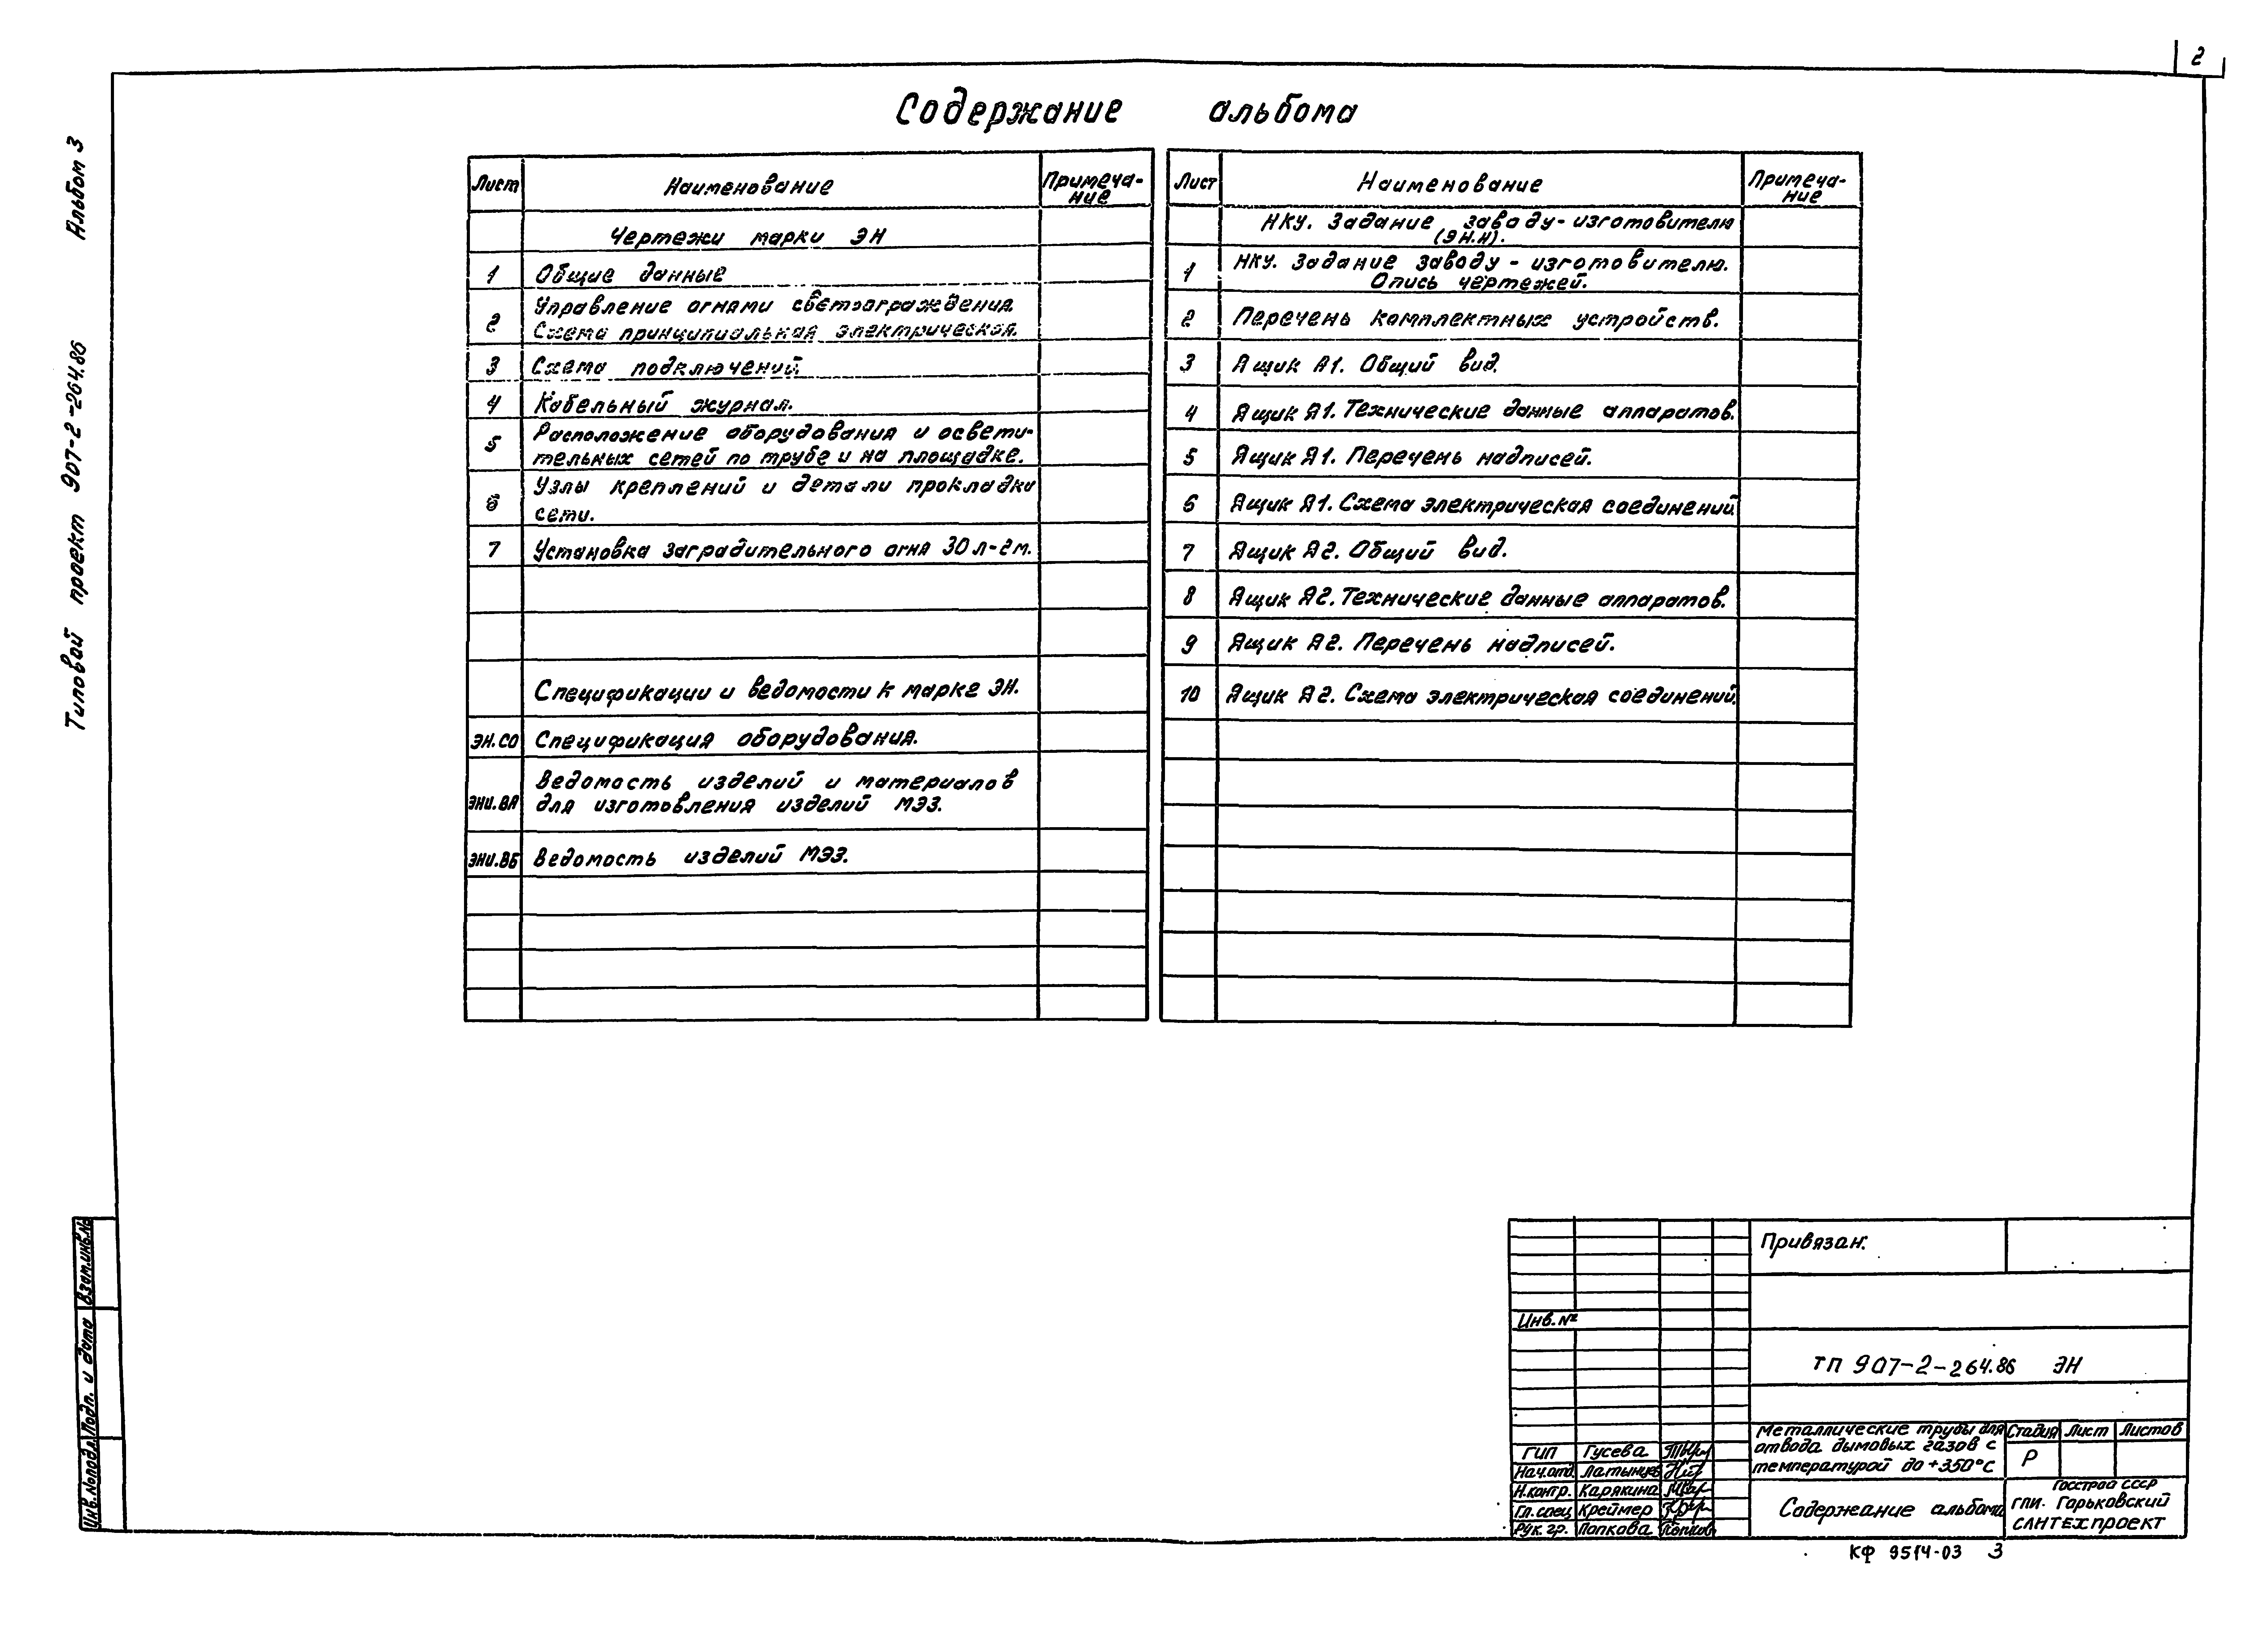 2
Содержание альбома
Альбом 3
Типовой проект 907-2-264.86
Лист Наименование Примеча-
ние
Чертежи марки ЭН
1 Общие данные
2 Управление огнями светоограждения.
Схема принципиальная электрическая.
3 Схема подключений.
4 Кабельный журнал.
5 Расположение оборудования и освети-
тельных сетей по трубе и на площадке.
6 Узлы креплений и детали прокладки
сети.
7 Установка заградительного огня ЗОЛ-2м.
Спецификации и ведомости к марке ЭН.
ЭН.СО Спецификация оборудования.
ЭНИ.ВА Ведомость изделий и материалов
для изготовления изделий МЭЗ.
ЭНИ.ВБ Ведомость изделий МЭЗ.
Лист Наименование Примеча-
ние
НКУ. Задание заводу-изготовителю
(ЭН.Н).
1 НКУ. Задание заводу - изготовителю.
Опись чертежей.
2 Перечень комплектных устройств.
3 Ящик Я1. Общий вид.
4 Ящик Я1. Технические данные аппаратов.
5 Ящик Я1. Перечень надписей.
6 Ящик Я1. Схема электрическая соединений
7 Ящик Я2. Общий вид.
8 Ящик Я2. Технические данные аппаратов.
9 Ящик Я2. Перечень надписей.
10 Ящик Я2. Схема электрическая соединений.
Взам.инв.№
Подп. и дата
Инв.№подл.
Привязан:
Инв.№
ТП 907-2-264.86 ЭН
ГИП Гусева
Нач.отд. Латынцев
Н.контр. Карякина
Гл.спец Креймер
Рук. гр. Попкова
Металлические трубы для
отвода дымовых газов с
температурой до +350°С
Стадия Лист Листов
Р
Содержание альбома
Госстрой СССР
ГПИ Горьковский
САНТЕХПРОЕКТ
КФ 9514-03 3